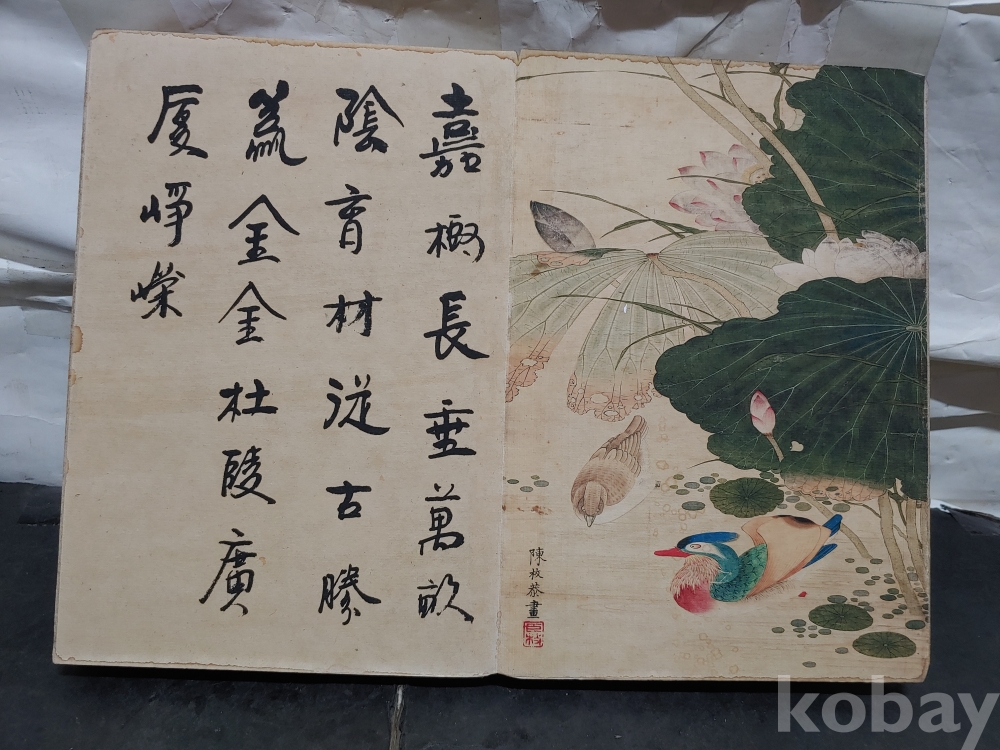 嘉樹長垂萬畝
陰育材從古勝
金金杜陵廣
廈崢嶸
陳枚恭畫
臣枚
kobay